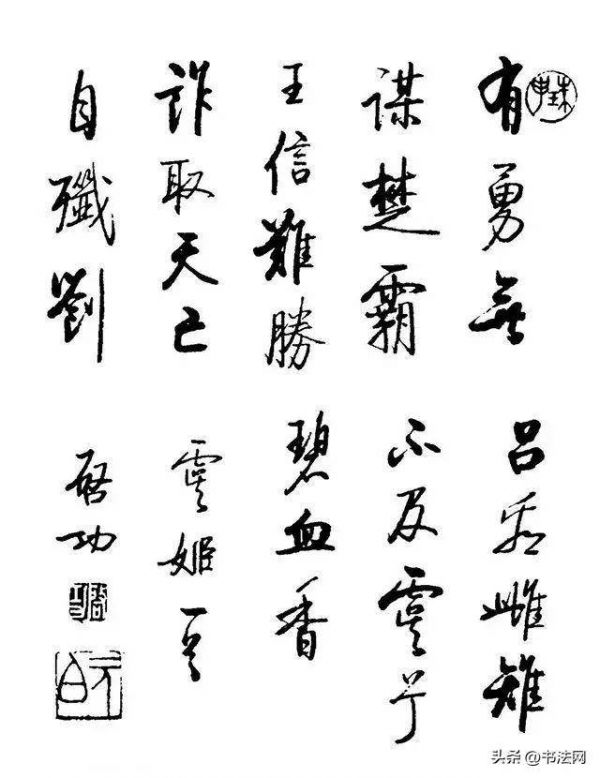 有勇無
謀楚霸
王信難勝
詐取天亡
自殲劉
呂雌雉
不及虞兮
碧血香
虞姬一首
启功
珠申
元白
头条 @书法网